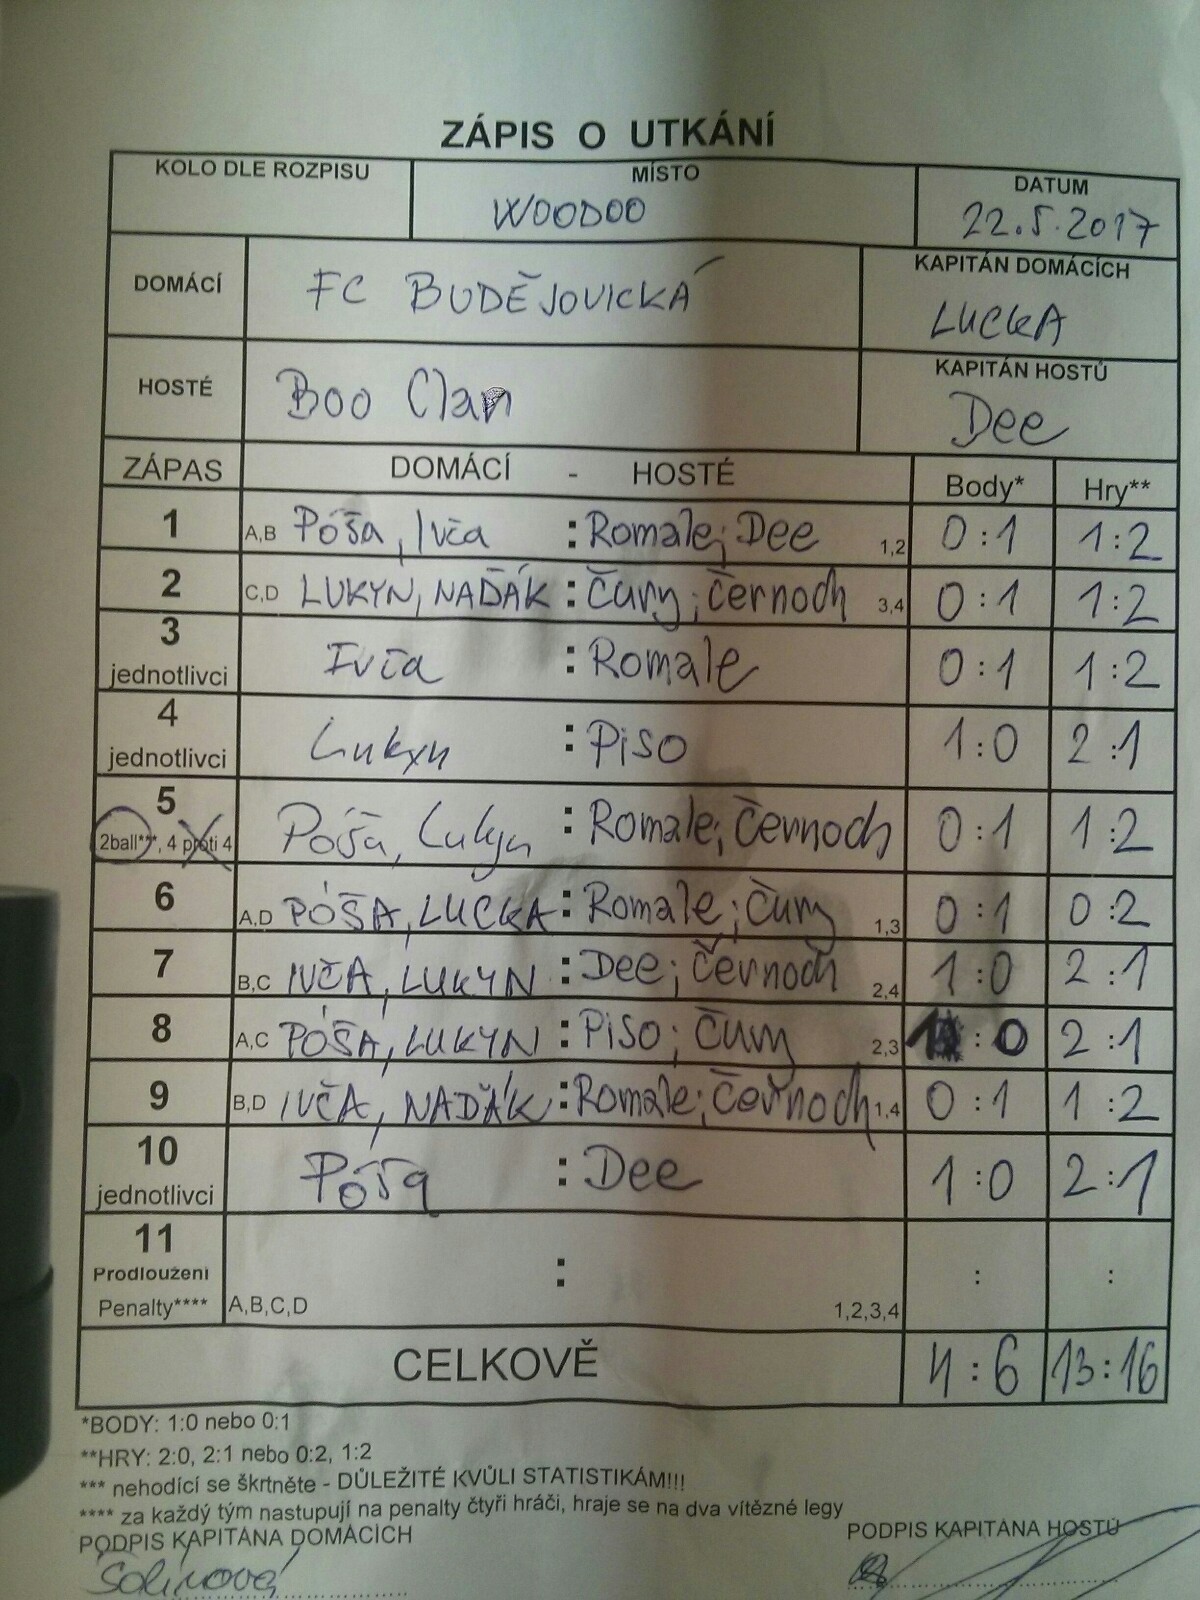 ZÁPIS O UTKÁNÍ
KOLO DLE ROZPISU MÍSTO DATUM
WOODOO 22.5.2017
DOMÁCÍ FC BUDĚJOVICKÁ KAPITÁN DOMÁCÍCH
LUCKA
HOSTÉ Boo Clan KAPITÁN HOSTŮ
Dee
ZÁPAS DOMÁCÍ - HOSTÉ Body* Hry**
1 A,B Póša, Ivča : Romale; Dee 1,2 0:1 1:2
2 C,D LUKYN, NAĎÁK : Čury; černoch 3,4 0:1 1:2
3 jednotlivci Ivča : Romale 0:1 1:2
4 jednotlivci Lukyn : Piso 1:0 2:1
5 2ball***, 4 proti 4 Póša, Lukyn : Romale; Černoch 0:1 1:2
6 A,D PÓŠA, LUCKA : Romale; Čury 1,3 0:1 0:2
7 B,C IVČA, LUKYN : Dee; Černoch 2,4 1:0 2:1
8 A,C PÓŠA, LUKYN : Piso; Čury 2,3 1:0 2:1
9 B,D IVČA, NAĎÁK : Romale; Černoch 1,4 0:1 1:2
10 jednotlivci Póša : Dee 1:0 2:1
11 : : :
Prodloužení
Penalty**** A,B,C,D 1,2,3,4
CELKOVĚ 4:6 13:16
*BODY: 1:0 nebo 0:1
**HRY: 2:0, 2:1 nebo 0:2, 1:2
*** nehodící se škrtněte - DŮLEŽITÉ KVŮLI STATISTIKÁM!!!
**** za každý tým nastupují na penalty čtyři hráči, hraje se na dva vítězné legy
PODPIS KAPITÁNA DOMÁCÍCH PODPIS KAPITÁNA HOSTŮ